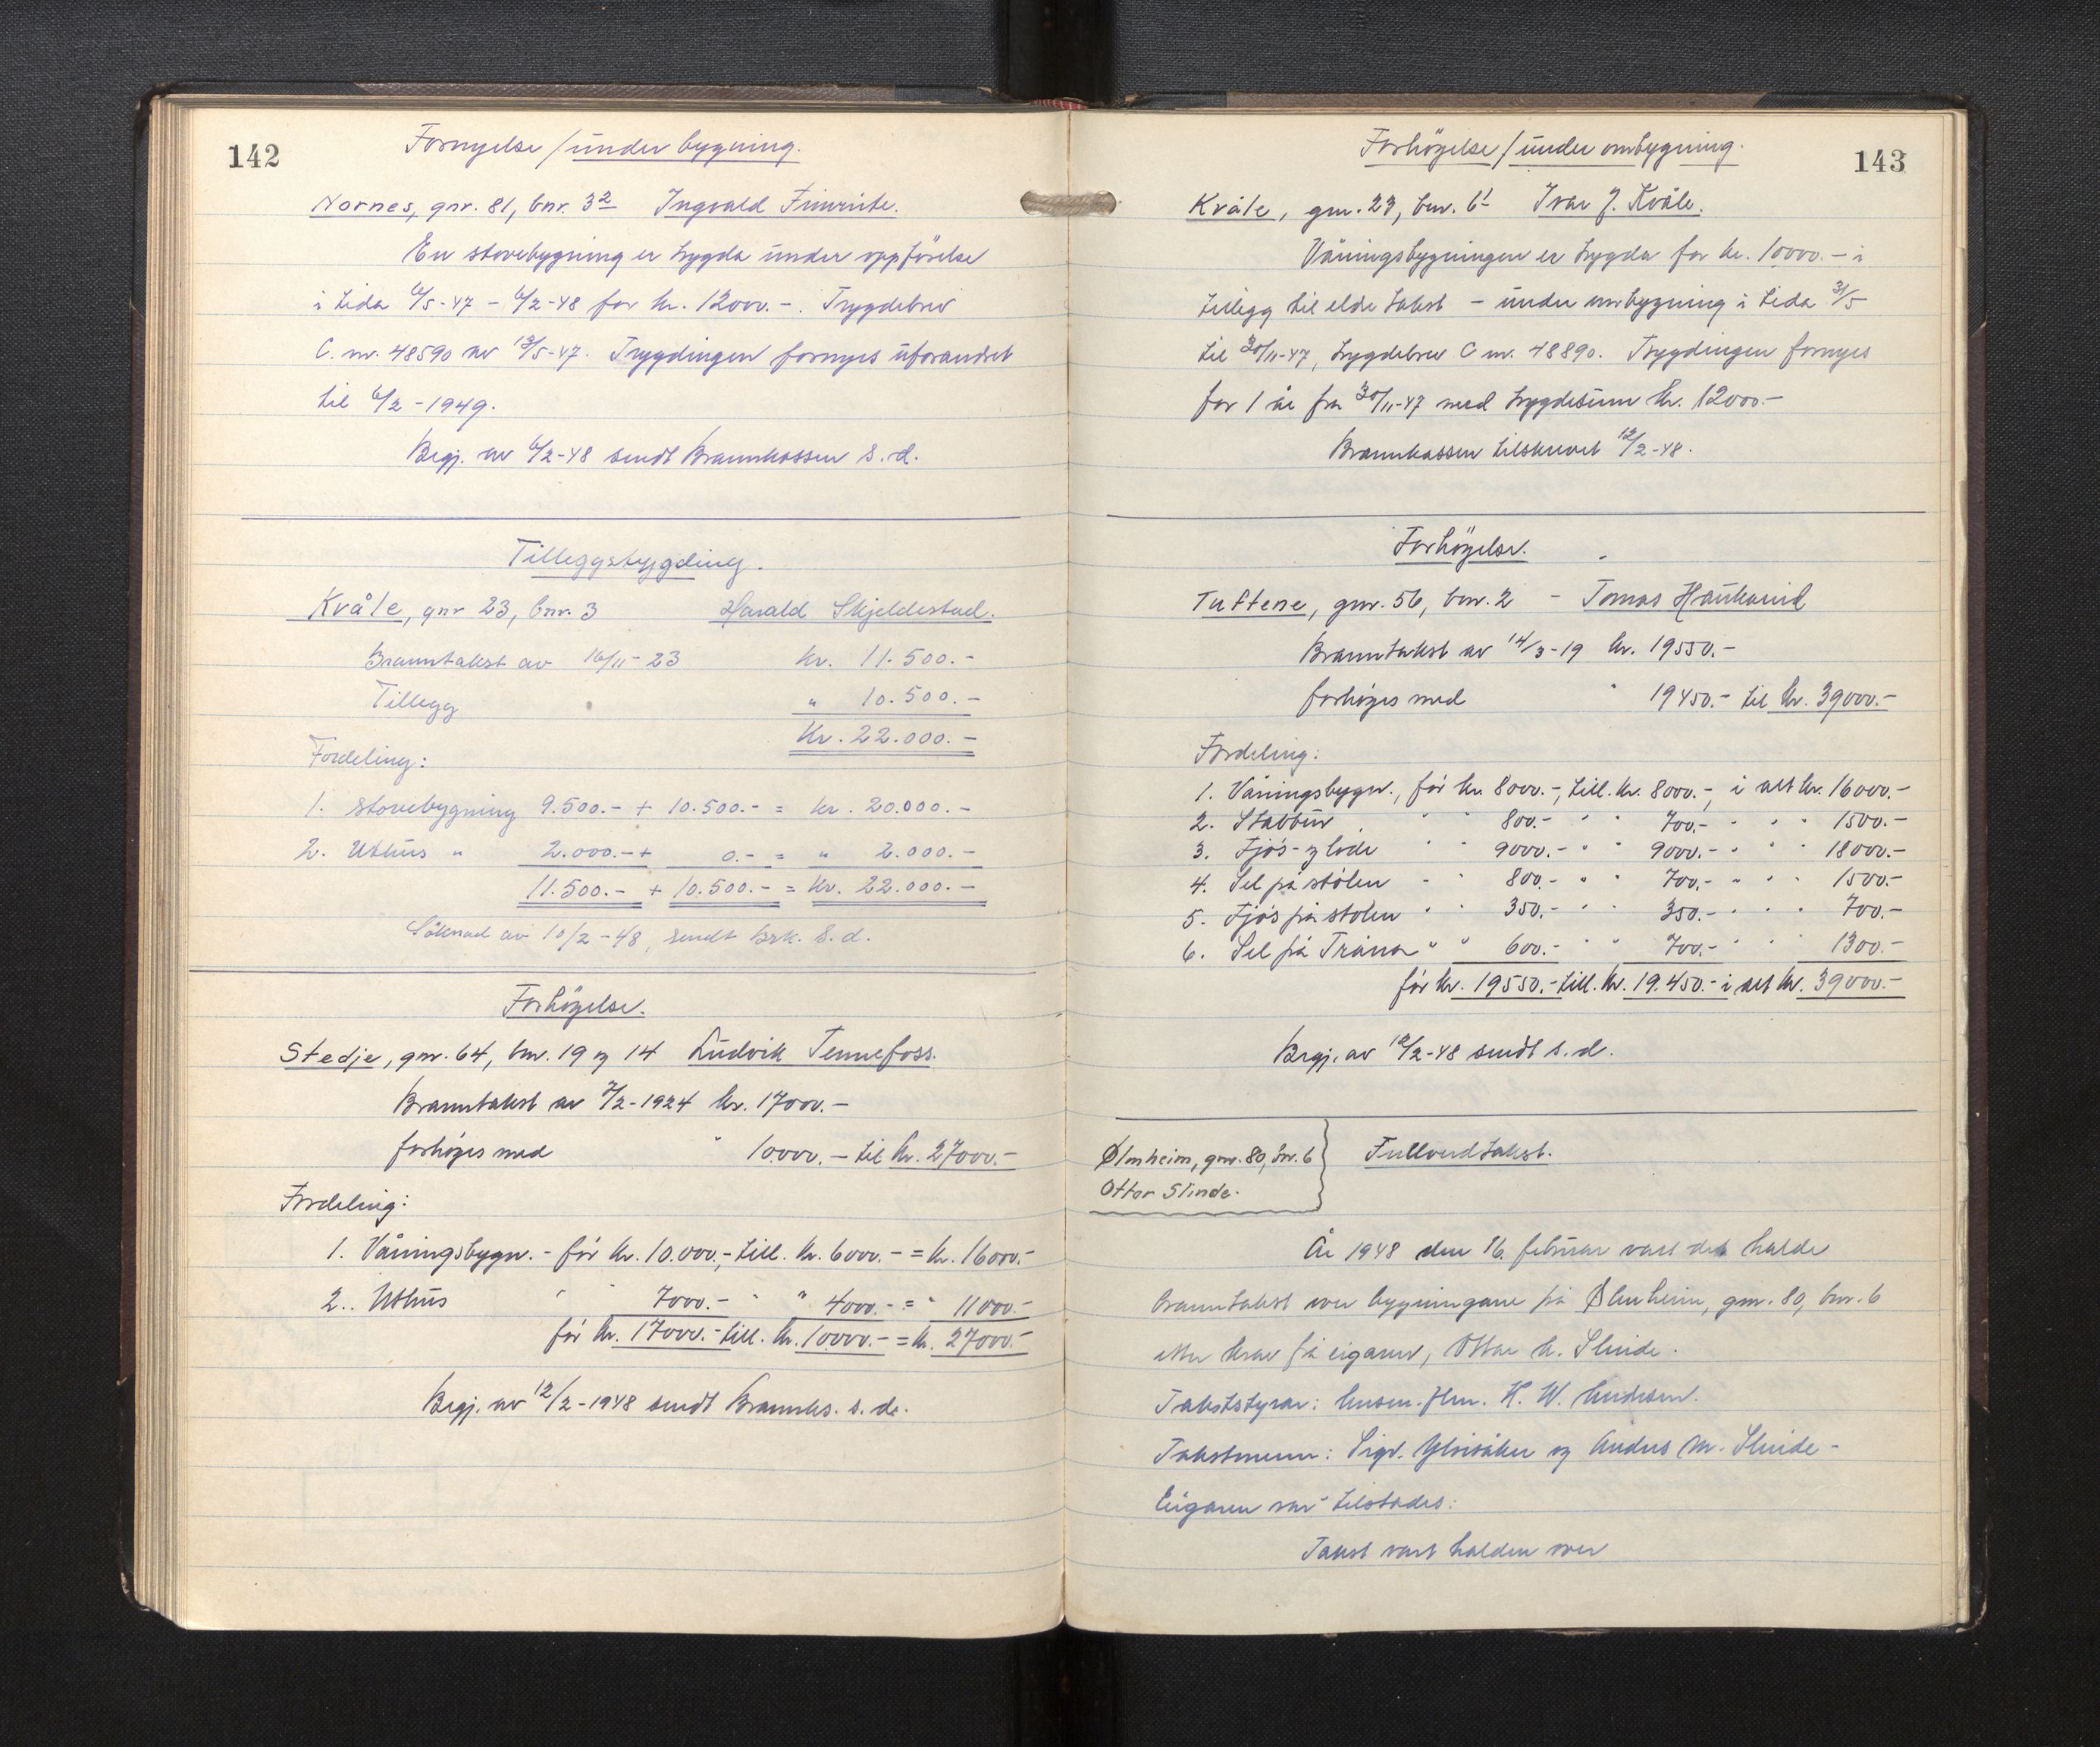 142
Fornyelse / under bygning.
Nornes, gnr. 81, bnr. 32 Ingvald Fimreite.
En stovebygning er trygda under oppförelse
i tida 6/5-47 - 6/2-48 for kr. 12000.-. Trygdebrev
C. nr. 48590 av 13/5-47. Trygdingen fornyes uforandret
til 6/2-1949.
Begj. av 6/2-48 sendt Brannkassen s.d.
Tilleggstrygding.
Kvåle, gnr 23, bnr. 3 Harald Skjeldestad.
Branntakst av 16/11-23 kr. 11.500.-
Tillegg " 10.500.-
Kr. 22.000.-
Fordeling:
1. Stovebygning 9.500.- + 10.500.- = kr. 20.000.-
2. Uthus " 2.000.- + 0.- = " 2.000.-
11.500.- + 10.500.- = Kr. 22.000.-
Söknad av 10/2-48, sendt brk. s.d.
Forhögelse.
Stedje, gnr. 64, bnr. 19 og 14 Ludvik Tennefoss.
Branntakst av 7/2-1924 kr. 17000.-
forhöges med " 10000.- til kr. 27000.-
Fordeling:
1. Våningsbygn. - för kr. 10.000.-, till. kr. 6000.- = kr. 16000.-
2.. Uthus " 7000.- " " 4000.- = " 11000.-
för kr. 17000.- till. kr. 10000.- = kr. 27000.-
Begj. av 12/2-1948 sendt Brannks. s.d.
143
Forhögelse / under ombygning.
Kvåle, gnr. 23, bnr. 61 Ivar J. Kvåle.
Våningsbygningen er trygda for kr. 10000.- i
tillegg til eldre takst - under ombygning i tida 31/5
til 30/11-47, trygdebrev C nr. 48890. Trygdingen fornyes
for 1 år fra 30/11-47 med trygdesum kr. 12000.-
Brannkassen tilskrevet 12/2-48.
Forhögelse.
Tuftene, gnr. 56, bnr. 2 - Tomas Haukaas
Branntakst av 14/3-19 kr. 19550.-
forhöges med " 19450.- til kr. 39000.-
Fordeling:
1. Våningsbygn., för kr. 8000.-, till. kr. 8000.-, i alt kr. 16000.-
2. Stabbur " " 800.- " " 700.- " " " 1500.-
3. Fjös- og löde " " 9000.- " " 9000.- " " " 18000.-
4. Sel på stölen " " 800.- " " 700.- " " " 1500.-
5. Fjös på stölen " " 350.- " " 350.- " " " 700.-
6. Sel på " " 600.- " " 700.- " " 1300.-
för kr. 19550.- till. kr. 19.450.- i alt kr. 39000.-
Begj. av 12/2-48 sendt s.d.
Ølmheim, gnr. 80, bnr. 6
Ottar Slinde.
Fullverdtakst.
År 1948 den 16. februar vart det halde
branntakst over bygningane på Ølmheim, gnr. 80, bnr. 6
etter krav frå eigaren, Ottar A. Slinde.
Takststyrar: lensm.flm. H. W. Andersen.
Takstmenn: Sigv. Ylvisåker og Anders M. Slinde -
Eigaren var tilstades:
Takst vart halden over